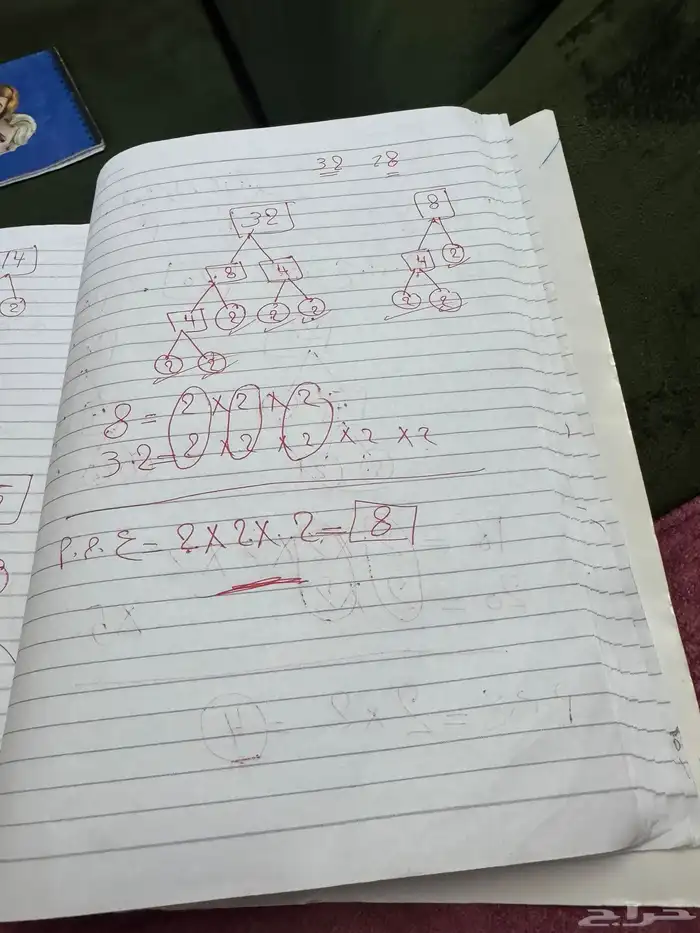 32 28
32 8
8 4 4 2
4 2 2 2 2 2
2 2
8 = 2 × 2 × 2
32 = 2 × 2 × 2 × 2 × 2
ع.م.أ = 2 × 2 × 2 = 8
14
2
حراج